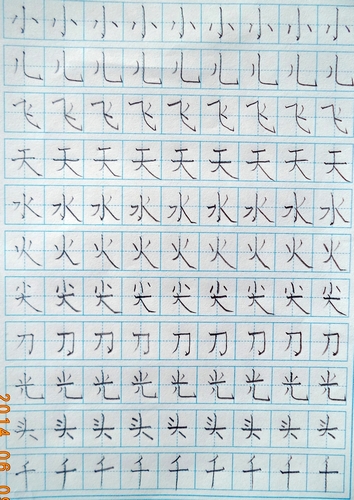 小小小小小小小小小
儿儿儿儿儿儿儿儿儿
飞飞飞飞飞飞飞飞飞
天天天天天天天天天
水水水水水水水水水
火火火火火火火火火
尖尖尖尖尖尖尖尖尖
刀刀刀刀刀刀刀刀刀
光光光光光光光光光
头头头头头头头头头
千千千千千千千千千
2014 06